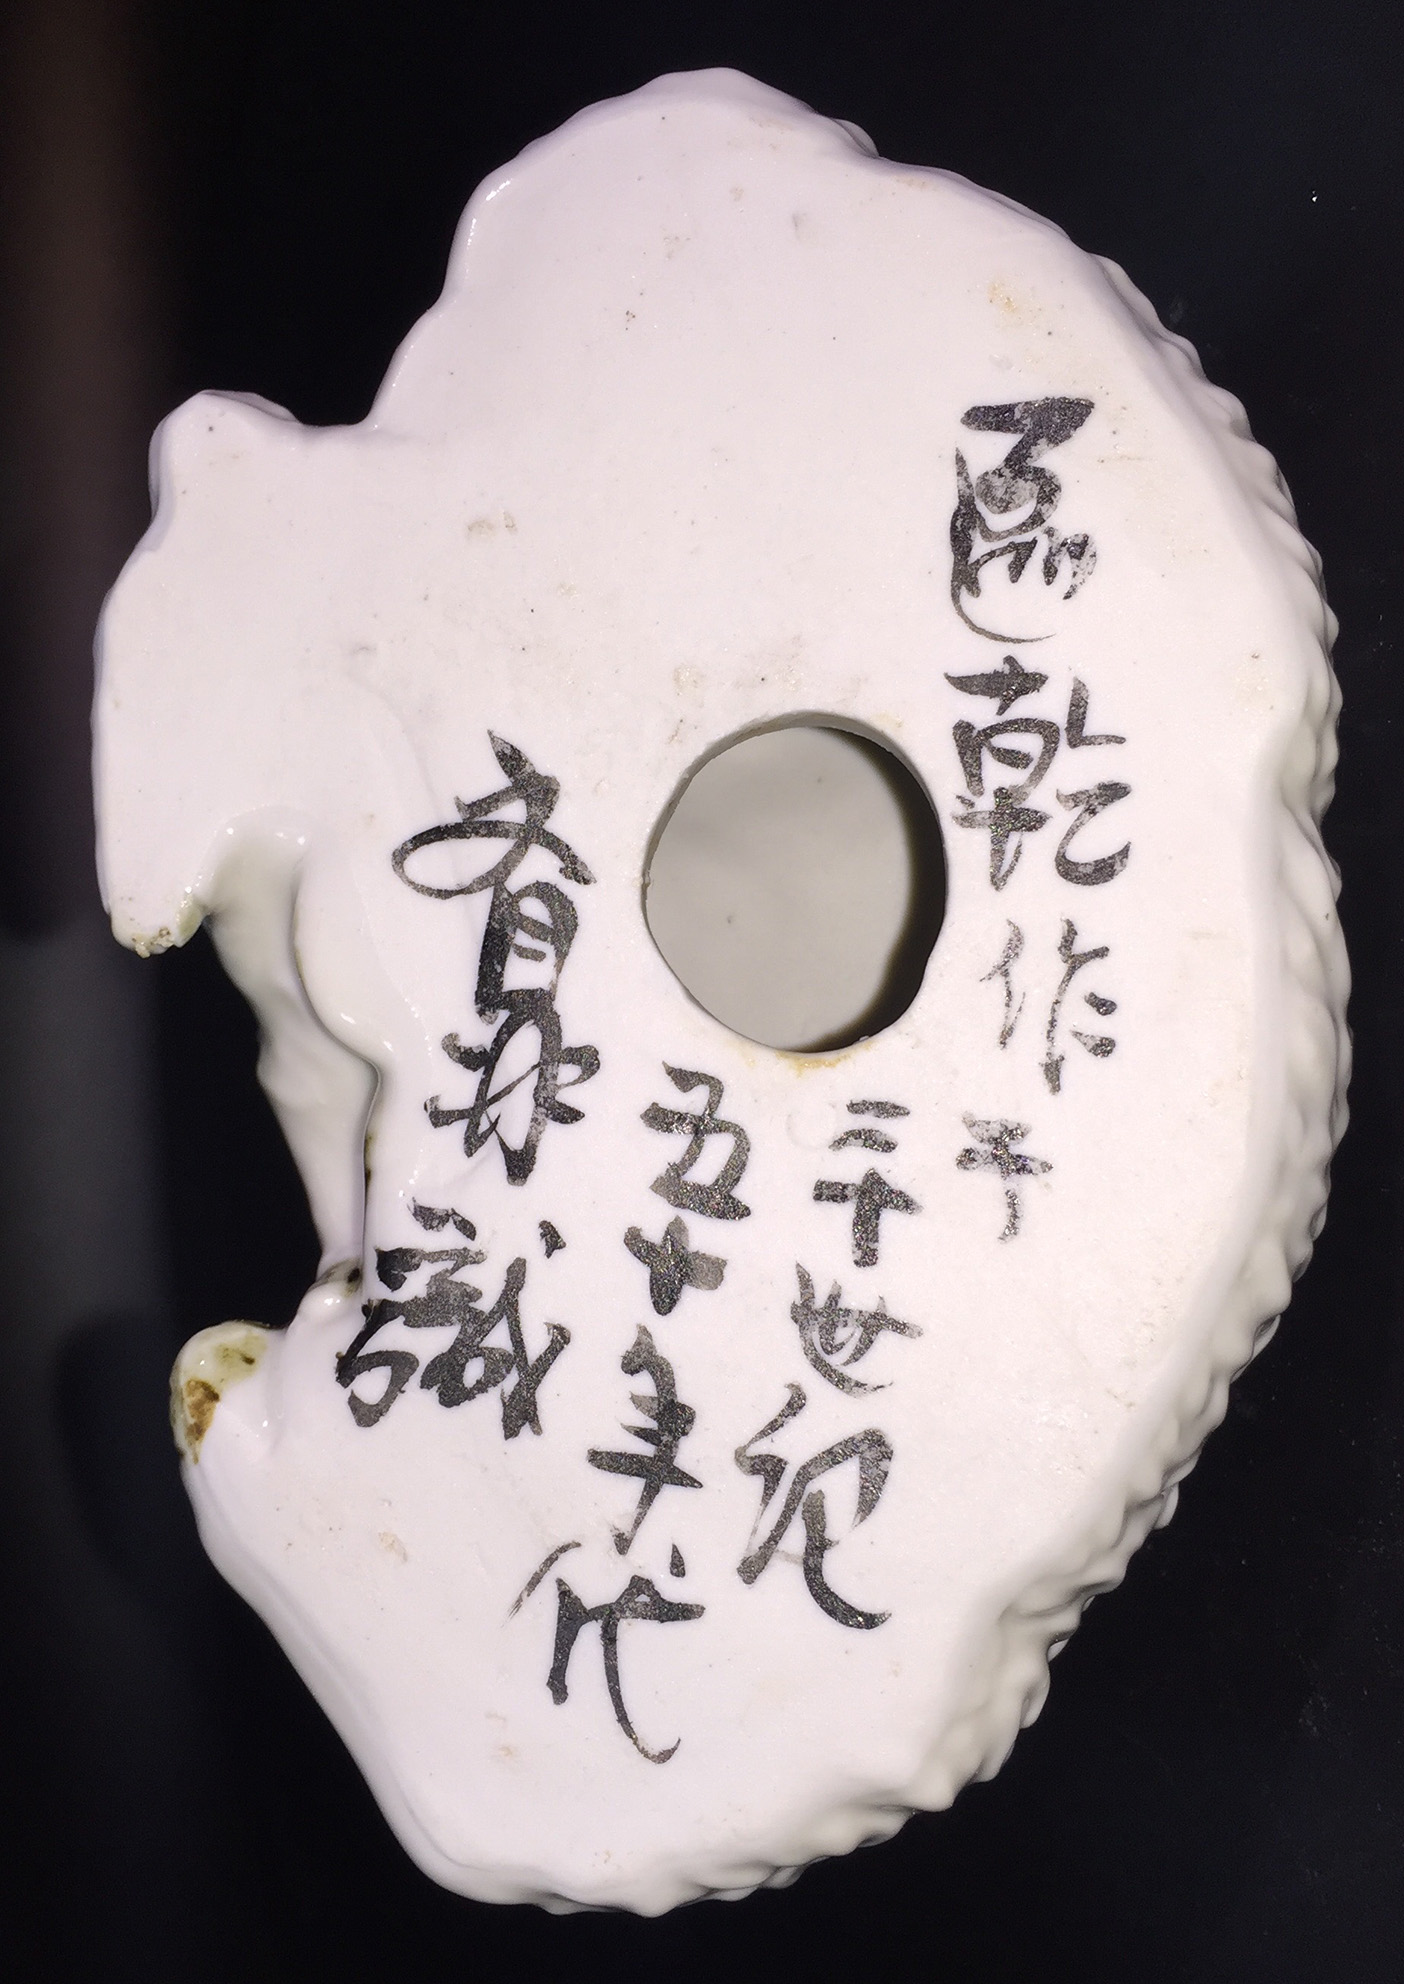 區乾作于
二十世紀
五十年代
育林識